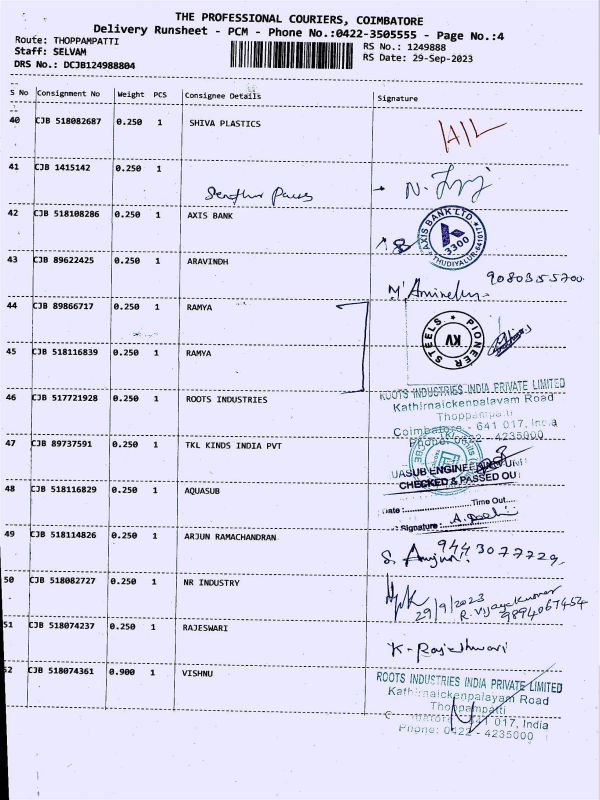 THE PROFESSIONAL COURIERS, COIMBATORE
Delivery Runsheet - PCM - Phone No.:0422-3505555 - Page No.:4
Route: THOPPAMPATTI
RS No.: 1249888
Staff: SELVAM
RS Date: 29-Sep-2023
DRS No.: DCJB124988804
S No Consignment No Weight PCS Consignee Details Signature
40 CJB 518082687 0.250 1 SHIVA PLASTICS
41 CJB 1415142 0.250 1
42 CJB 518108286 0.250 1 AXIS BANK
AXIS BANK LTD.
3300
THUDIYALUR-641017
43 CJB 89622425 0.250 1 ARAVINDH
9080355700
44 CJB 89866717 0.250 1 RAMYA
PIONEER STEELS
KV
45 CJB 518116839 0.250 1 RAMYA
46 CJB 517721928 0.250 1 ROOTS INDUSTRIES
ROOTS INDUSTRIES INDIA PRIVATE LIMITED
Kathirnaickenpalayam Road
Thoppampatti
Coimbatore - 641 017, India
Phone: 0422 - 4235000
47 CJB 89737591 0.250 1 TKL KINDS INDIA PVT
UASUB ENGINEERING UNI
CHECKED & PASSED OU
48 CJB 518116829 0.250 1 AQUASUB
Date : Time Out....
Signature :
49 CJB 518114826 0.250 1 ARJUN RAMACHANDRAN
S. Arjun 9443077729
50 CJB 518082727 0.250 1 NR INDUSTRY
29/9/2023 R. Vijayakumar
9894067454
51 CJB 518074237 0.250 1 RAJESWARI
K. Rajeshwari
52 CJB 518074361 0.900 1 VISHNU
ROOTS INDUSTRIES INDIA PRIVATE LIMITED
Kathirnaickenpalayam Road
Thoppampatti
Coimbatore - 641 017, India
Phone: 0422 - 4235000